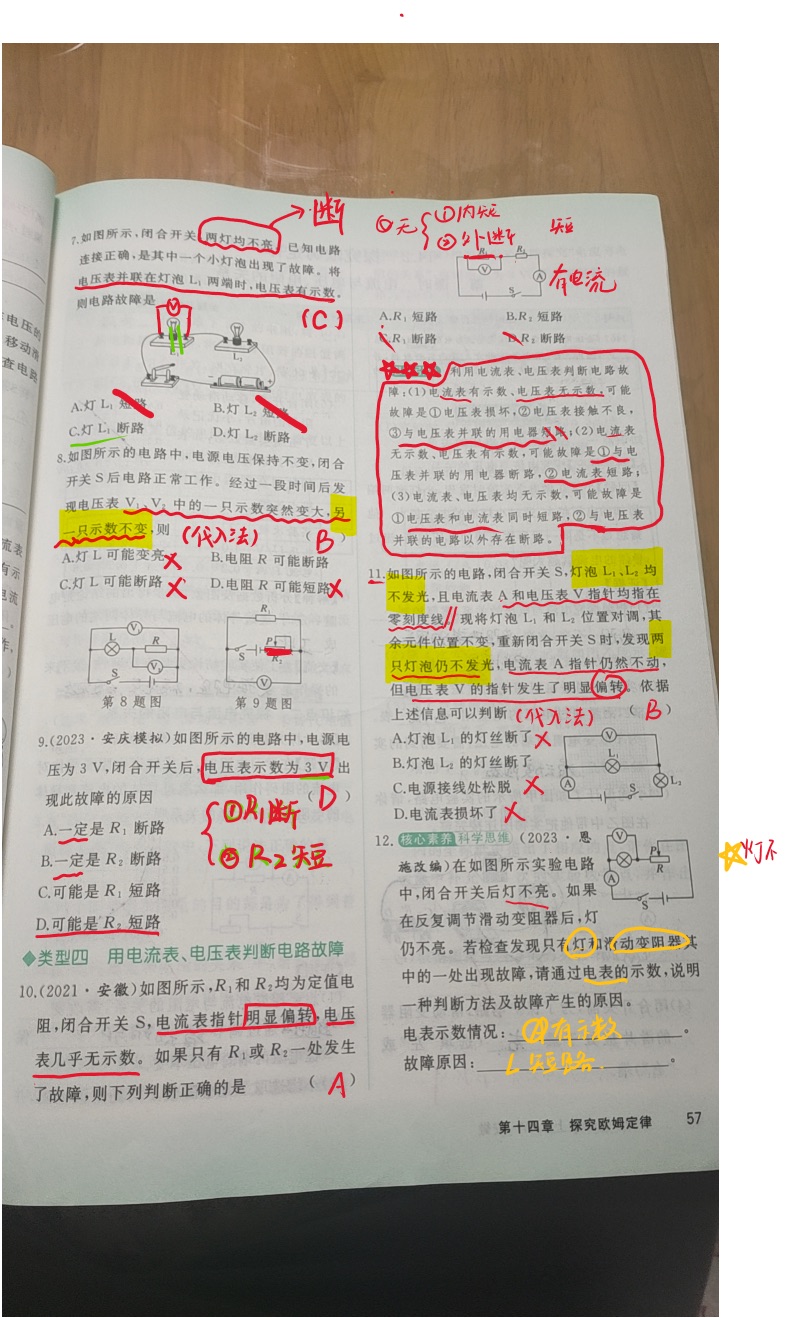 断
7.如图所示,闭合开关,两灯均不亮。已知电路
连接正确,是其中一个小灯泡出现了故障。将
电压表并联在灯泡 L₁ 两端时,电压表有示数。
则电路故障是
(C)
V
L₂
A.灯 L₁ 短路 B.灯 L₂ 短路
C.灯 L₁ 断路 D.灯 L₂ 断路
8.如图所示的电路中,电源电压保持不变,闭合
开关 S 后电路正常工作。经过一段时间后发
现电压表 V₁、V₂ 中的一只示数突然变大,另
一只示数不变,则 (代入法) ( B )
A.灯 L 可能变亮 B.电阻 R 可能断路
C.灯 L 可能断路 D.电阻 R 可能短路
V₁ L R V₂ S
R₁ S P R₂ V
第 8 题图 第 9 题图
9.(2023·安庆模拟)如图所示的电路中,电源电
压为 3 V,闭合开关后,电压表示数为 3 V,出
现此故障的原因 ( D )
A.一定是 R₁ 断路
B.一定是 R₂ 断路
C.可能是 R₁ 短路
D.可能是 R₂ 短路
①R₁断
②R₂短
◆类型四 用电流表、电压表判断电路故障
10.(2021·安徽)如图所示,R₁和 R₂ 均为定值电
阻,闭合开关 S,电流表指针明显偏转,电压
表几乎无示数。如果只有 R₁ 或 R₂ 一处发生
了故障,则下列判断正确的是 ( A )
无
①内短
②外断
短
有电流
R₁ R₂ V A S
A.R₁ 短路 B.R₂ 短路
C.R₁ 断路 D.R₂ 断路
利用电流表、电压表判断电路故
障:(1)电流表有示数、电压表无示数,可能
故障是①电压表损坏,②电压表接触不良,
③与电压表并联的用电器短路;(2)电流表
无示数、电压表有示数,可能故障是①与电
压表并联的用电器断路,②电流表短路;
(3)电流表、电压表均无示数,可能故障是
①电压表和电流表同时短路,②与电压表
并联的电路以外存在断路。
11.如图所示的电路,闭合开关 S,灯泡 L₁、L₂ 均
不发光,且电流表 A 和电压表 V 指针均指在
零刻度线。现将灯泡 L₁ 和 L₂ 位置对调,其
余元件位置不变,重新闭合开关 S 时,发现两
只灯泡仍不发光,电流表 A 指针仍然不动,
但电压表 V 的指针发生了明显偏转。依据
上述信息可以判断 (代入法) ( B )
A.灯泡 L₁ 的灯丝断了
B.灯泡 L₂ 的灯丝断了
C.电源接线处松脱
D.电流表损坏了
V L₁ L₂ A S
12.核心素养 科学思维 (2023·恩
施改编)在如图所示实验电路
中,闭合开关后灯不亮。如果
在反复调节滑动变阻器后,灯
仍不亮。若检查发现只有灯和滑动变阻器其
中的一处出现故障,请通过电表的示数,说明
一种判断方法及故障产生的原因。
V P R A S
灯不
电表示数情况: 有示数 。
故障原因: L 短路 。
第十四章 探究欧姆定律 57